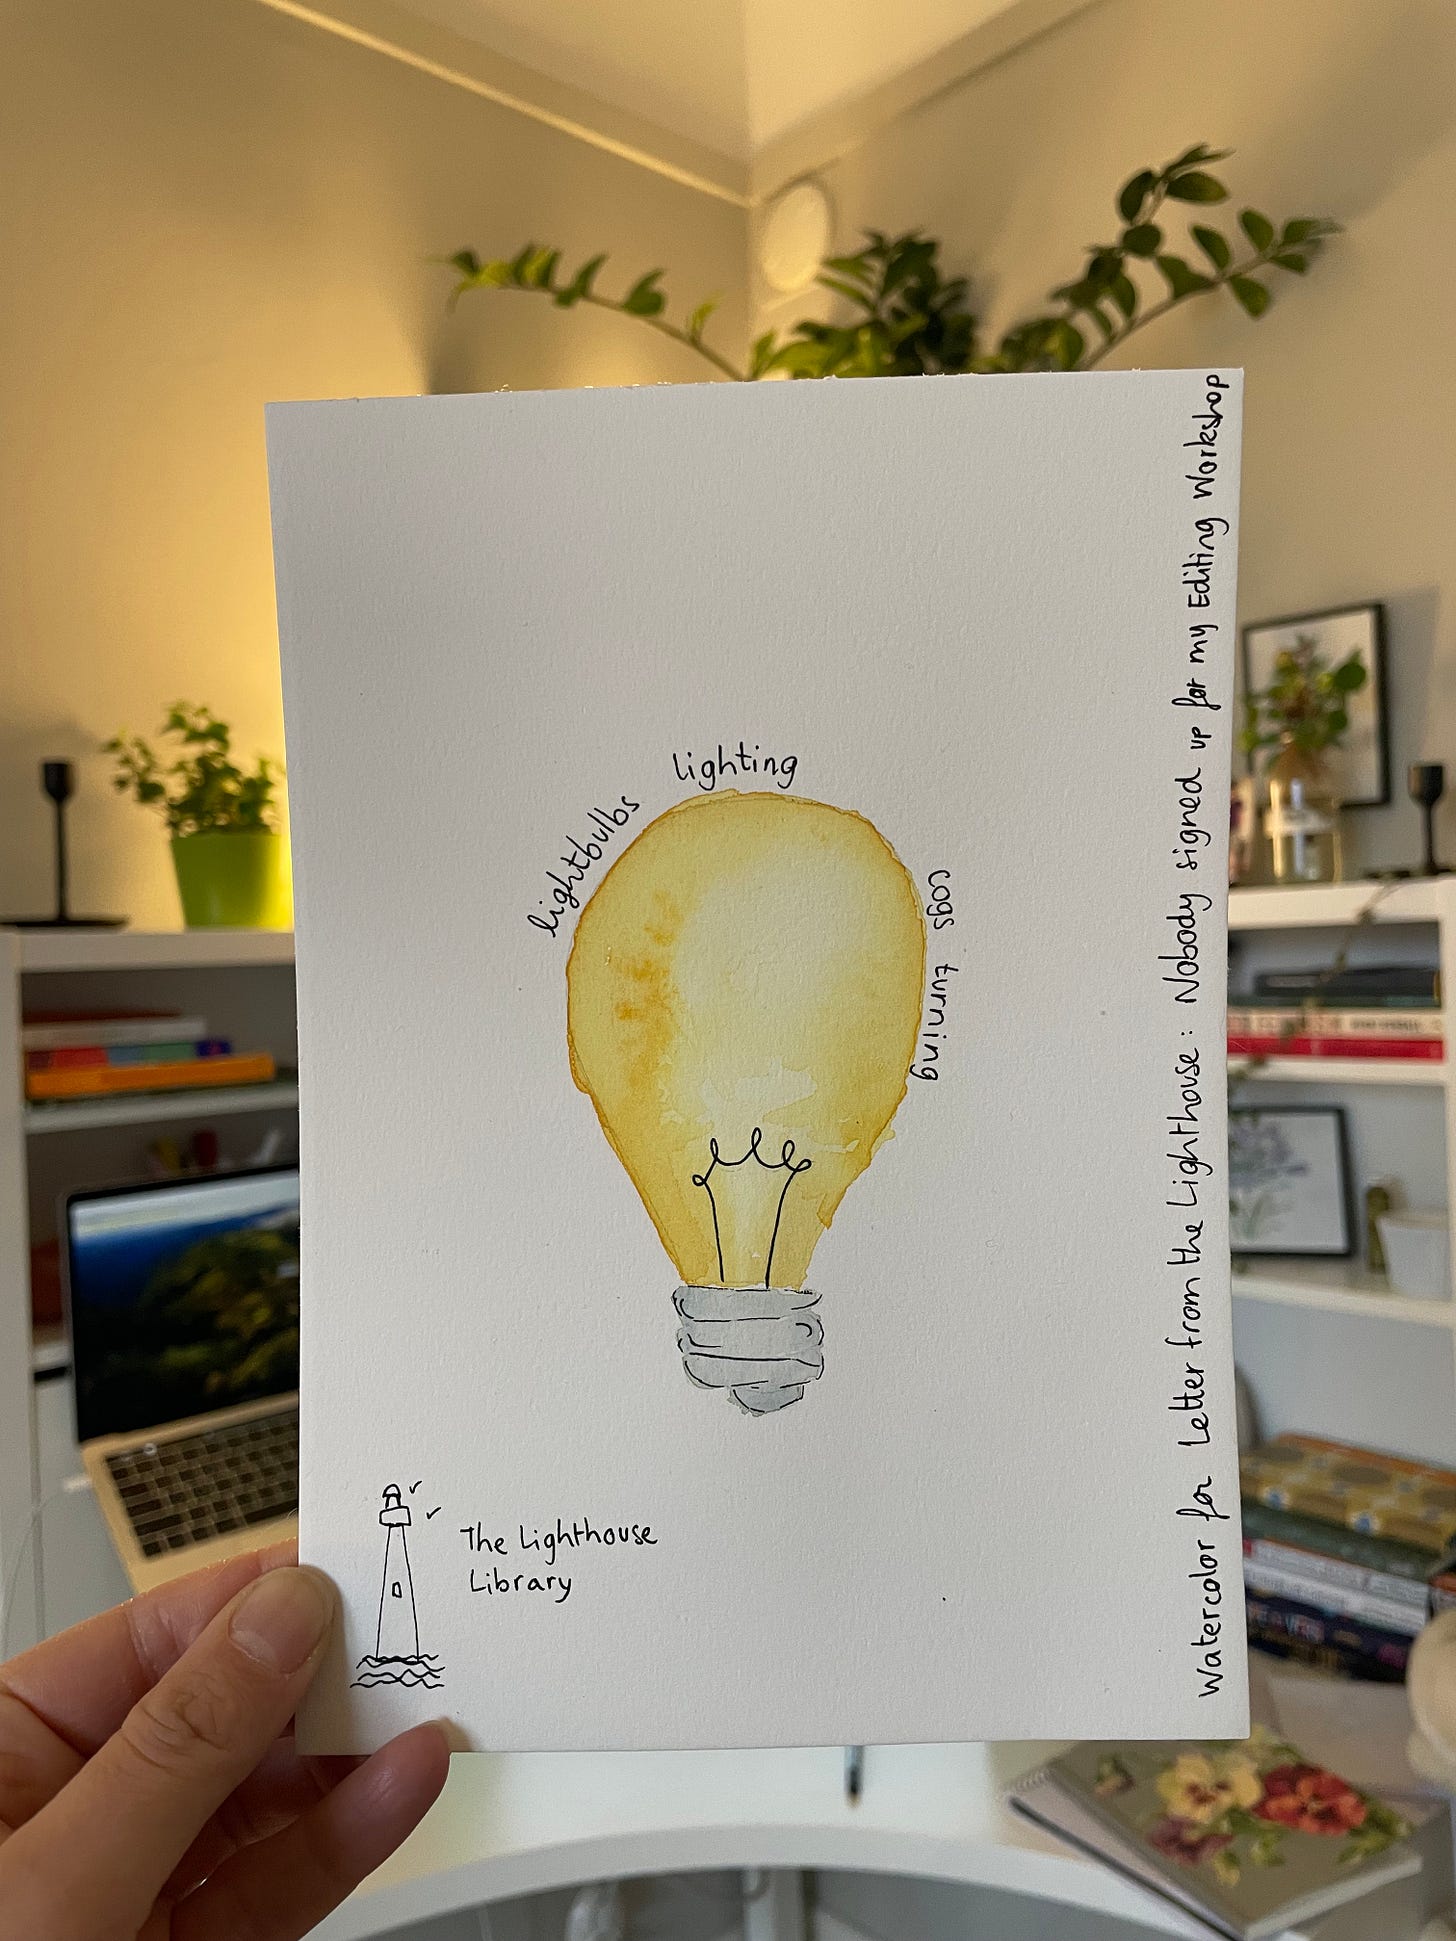 lightbulbs
lighting
cogs turning
The Lighthouse
Library
Watercolor for Letter from the Lighthouse: Nobody signed up for my Editing Workshop